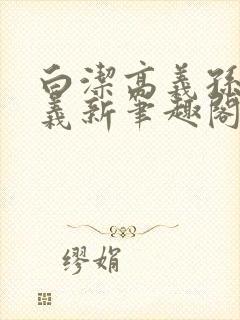 白潔高義孫
義新筆趣閣
缪娟